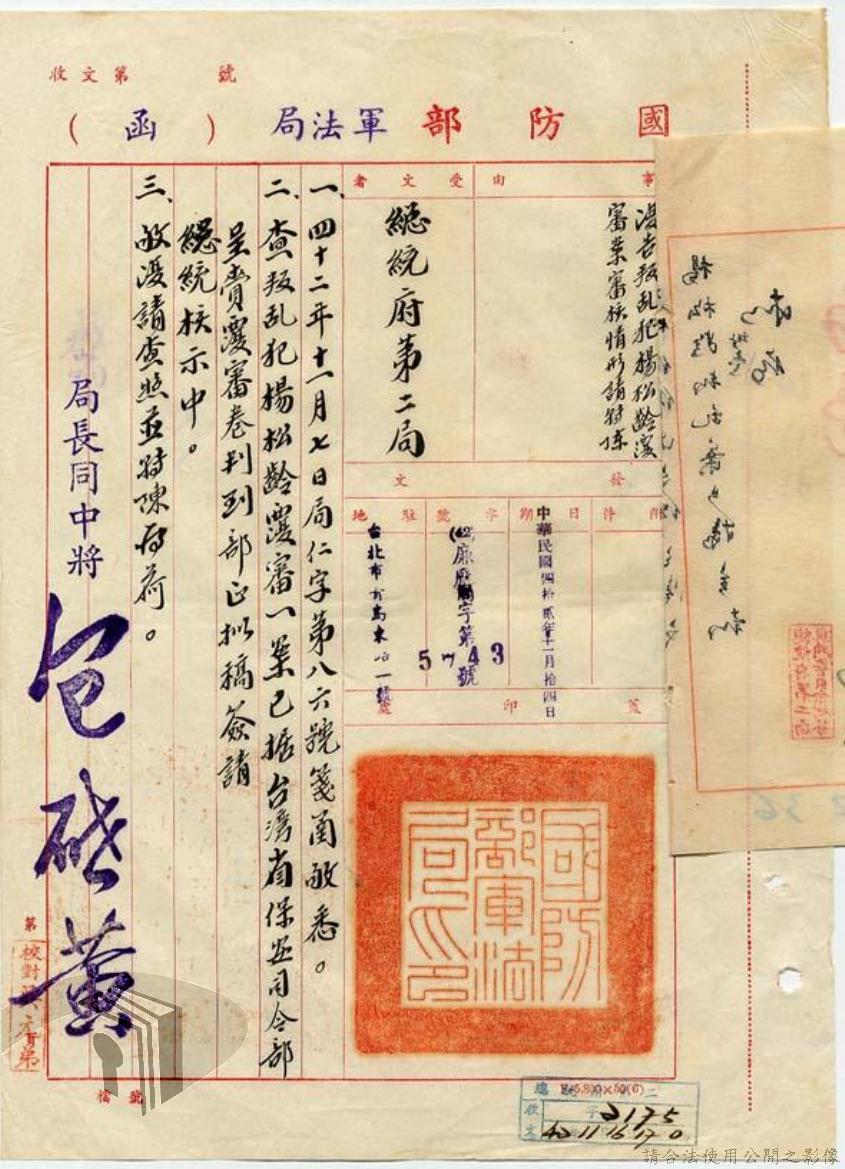 收文第 號
國防部軍法局(函)
事由
受文者
復告叛乱犯楊松齡覆
審案審核情形請轉陳
總統府第二局
發文
附件
日期
字號
駐地
中華民國四拾貳年十一月拾四日
(42)廉 字第5743號
蓋印處
國防部軍法局印
一、四十二年十一月七日局仁字第八六號箋函敬悉。
二、查叛乱犯楊松齡覆審一案已據台灣省保安司令部
呈賫覆審卷判到部正拟稿簽請
總統核示中。
三、敬復請查照並轉陳為荷。
局長同中將包啟黃
第
校對
檔號
總收文
字
2175
42 11 16 17 0
E45,800×50(6)
請合法使用公開之影像